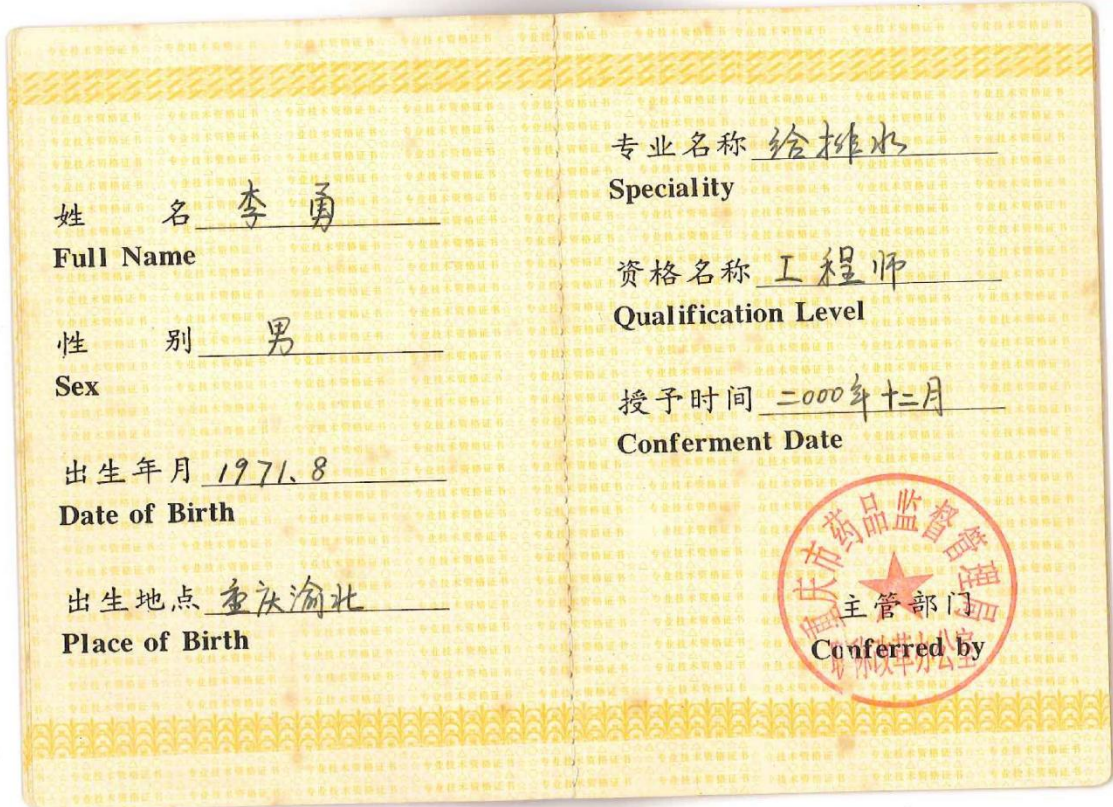 姓 名 李勇
Full Name
性 别 男
Sex
出生年月 1971.8
Date of Birth
出生地点 重庆渝北
Place of Birth
专业名称 给排水
Speciality
资格名称 工程师
Qualification Level
授予时间 二000年十二月
Conferment Date
重庆市药品监督管理局
主管部门
Conferred by
职称改革办公室